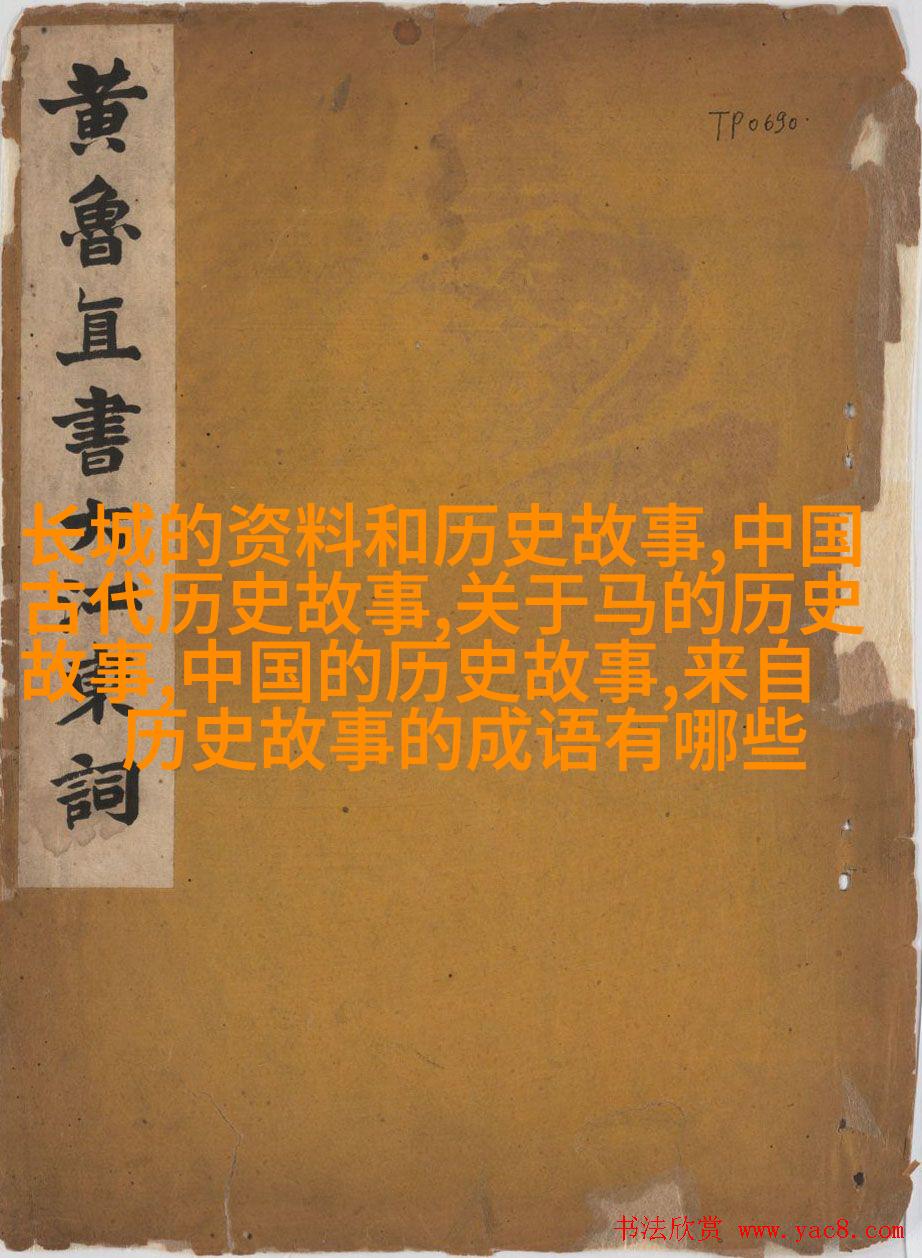 黄魯直書大江東詞
TP0690
长城的资料和历史故事,中国
古代历史故事,关于马的历史
故事,中国的历史故事,来自
历史故事的成语有哪些
书法欣赏 www.yac8.com